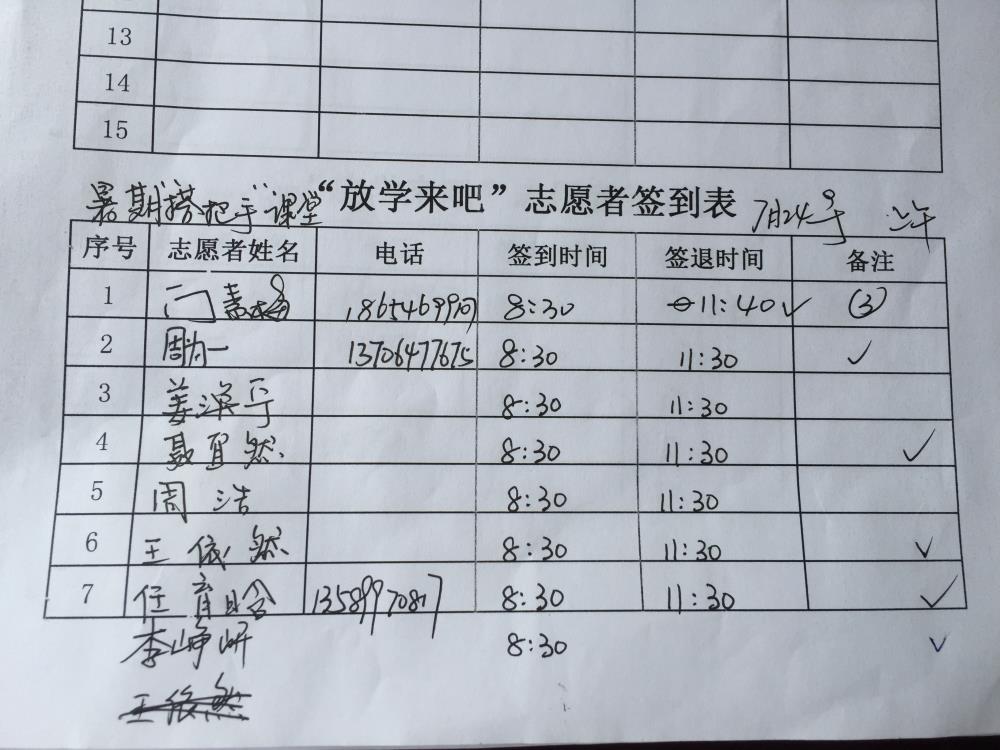 13
14
15
暑期搭把手课堂 “放学来吧”志愿者签到表 7月24号 上午
序号 志愿者姓名 电话 签到时间 签退时间 备注
1 8:30 11:40 ✓ (3)
2 周为一 13706477675 8:30 11:30 ✓
3 姜 8:30 11:30
4 聂宜然 8:30 11:30 ✓
5 周浩 8:30 11:30
6 王依然 8:30 11:30 ✓
7 任育晗 8:30 11:30 ✓
李峥妍 8:30 ✓